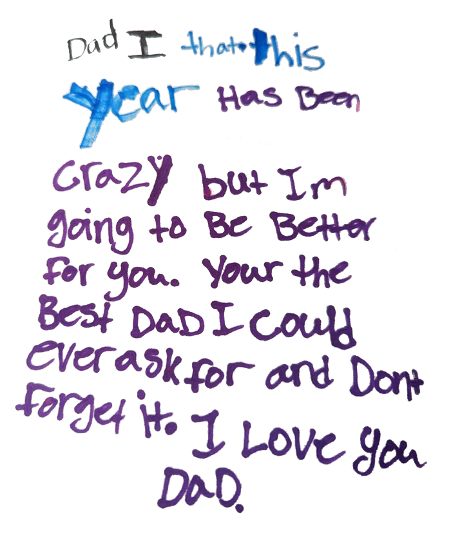 Dad I that this
year Has Been
Crazy but Im
going to Be Better
for you. Your the
Best DaD I could
ever ask for and Dont
forget it. I Love you
DaD.